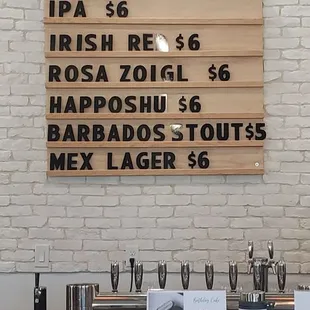 IPA $6
IRISH RED $6
ROSA ZOIGL $6
HAPPOSHU $6
BARBADOS STOUT $5
MEX LAGER $6